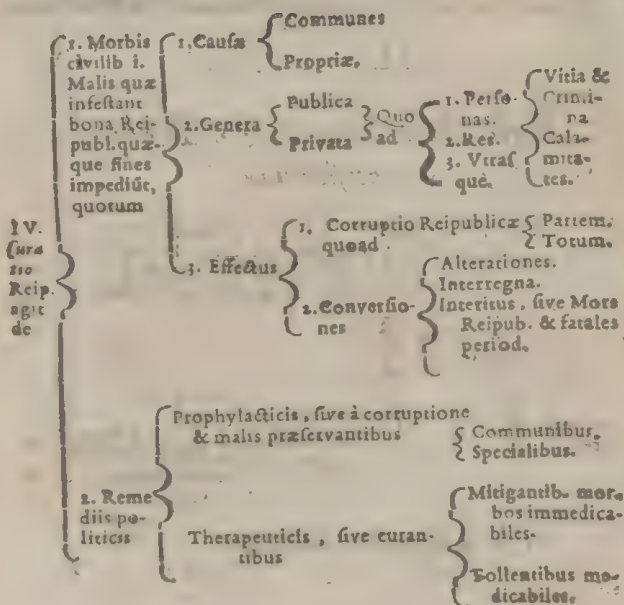 IV.
Cura
tio
Reip.
agit
de
1. Morbis
civilib i.
Malis quæ
infeſtant
bona Rei-
publ. quæ-
que fines
impediūt,
quotum
1. Cauſæ
Communes
Propriæ.
2. Genera
Publica
Privata
Quo
ad
1. Perſo-
nas.
2. Res.
3. Vtraſ
què.
Vitia &
Crimi-
na
Cala-
mita-
tes.
3. Effectus
1. Corruptio Reipublicæ
quoad
Partem.
Totum.
2. Converſio-
nes
Alterationes.
Interregna.
Interitus, ſive Mors
Reipub. & fatales
period.
2. Reme
diis po-
liticis
Prophylacticis, ſive à corruptione
& malis præſervantibus
Communibus.
Specialibus.
Therapeuticis, ſive curan-
tibus
Mitigantib. mor-
bos immedica-
biles.
Tollentibus me-
dicabiles.